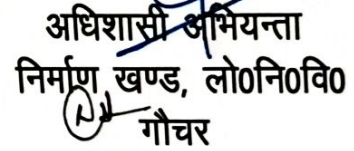 अधिशासी अभियन्ता
निर्माण खण्ड, लो0नि0वि0
गौचर